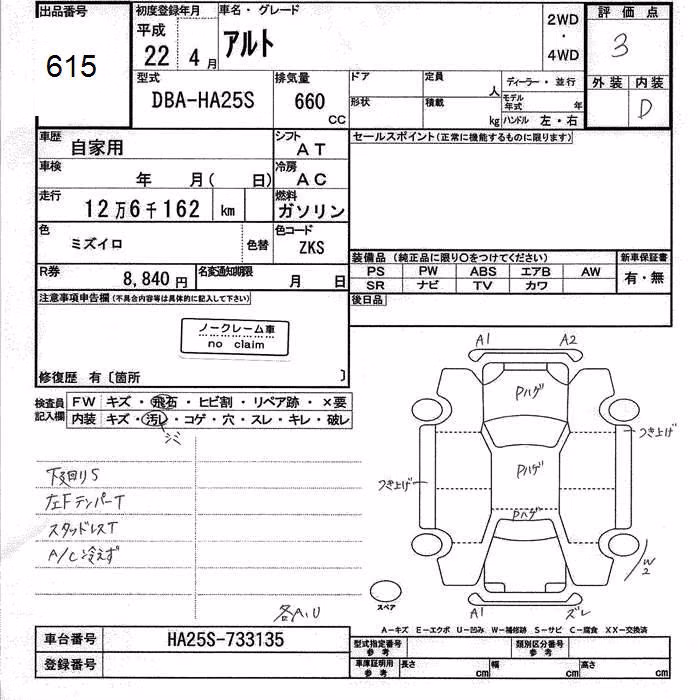 出品番号
615
初度登録年月
平成
22 年 4 月
車名・グレード
アルト
2WD
・
4WD
評価点
3
外装 内装
D
型式
DBA-HA25S
排気量
660
CC
ドア
定員
人
ディーラー・並行
形状
積載
kg
モデル年式 年
ハンドル 左・右
車歴
自家用
シフト
AT
車検
年 月( 日)
冷房
AC
走行
12万6千162 km
燃料
ガソリン
色
ミズイロ
色替
色コード
ZKS
R券
8,840円
名変通知期限
月 日
セールスポイント(正常に機能するものに限ります)
装備品 (純正品に限り○をつけてください)
新車保証書
PS PW ABS エアB AW
SR ナビ TV カワ
有・無
後日品
注意事項申告欄 (不具合内容等は具体的に記入して下さい)
ノークレーム車
no claim
修復歴 有〔箇所 〕
検査員
記入欄
FW キズ・飛石・ヒビ割・リペア跡・×要
内装 キズ・汚レ・コゲ・穴・スレ・キレ・破レ
シミ
下回りS
左FテンパーT
スタッドレスT
A/C冷えず
各A,U
A1 A2
Pハゲ
つき上げ
Pハゲ
つき上げ
Pハゲ
W2
スペア
A1 ズレ
A-キズ E-エクボ U-凹み W-補修跡 S-サビ C-腐食 XX-交換済
車台番号
HA25S-733135
登録番号
型式指定番号
参考
類別区分番号
参考
車庫証明用
参考
長さ cm 幅 cm 高さ cm